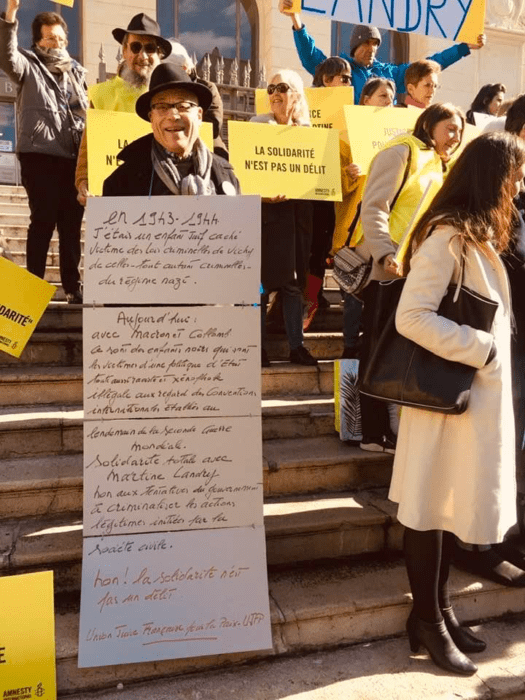 LANDRY
LA SOLIDARITÉ
N'EST PAS UN DÉLIT
AMNESTY
LA
JUSTICE
PO
SOLIDARITÉ
N'E
DARITÉ"
En 1943-1944
J'étais un enfant Juif caché
victime des lois criminelles de Vichy
de celles tout autant criminelles
du régime nazi.
Aujourd'hui :
avec Macron et Collomb
ce sont des enfants noirs qui sont
les victimes d'une politique d'État
tout aussi raciste et xénophobe
illégale aux regard des conventions
internationales établies au
lendemain de la seconde Guerre
Mondiale.
Solidarité totale avec
Martine Landry
non aux tentatives du gouvernement
à criminaliser les actions
légitimes initiées par la
société civile.
non! la solidarité n'est
pas un délit
Union Juive Française pour la Paix. UJFP
AMNESTY
INTERNATIONAL